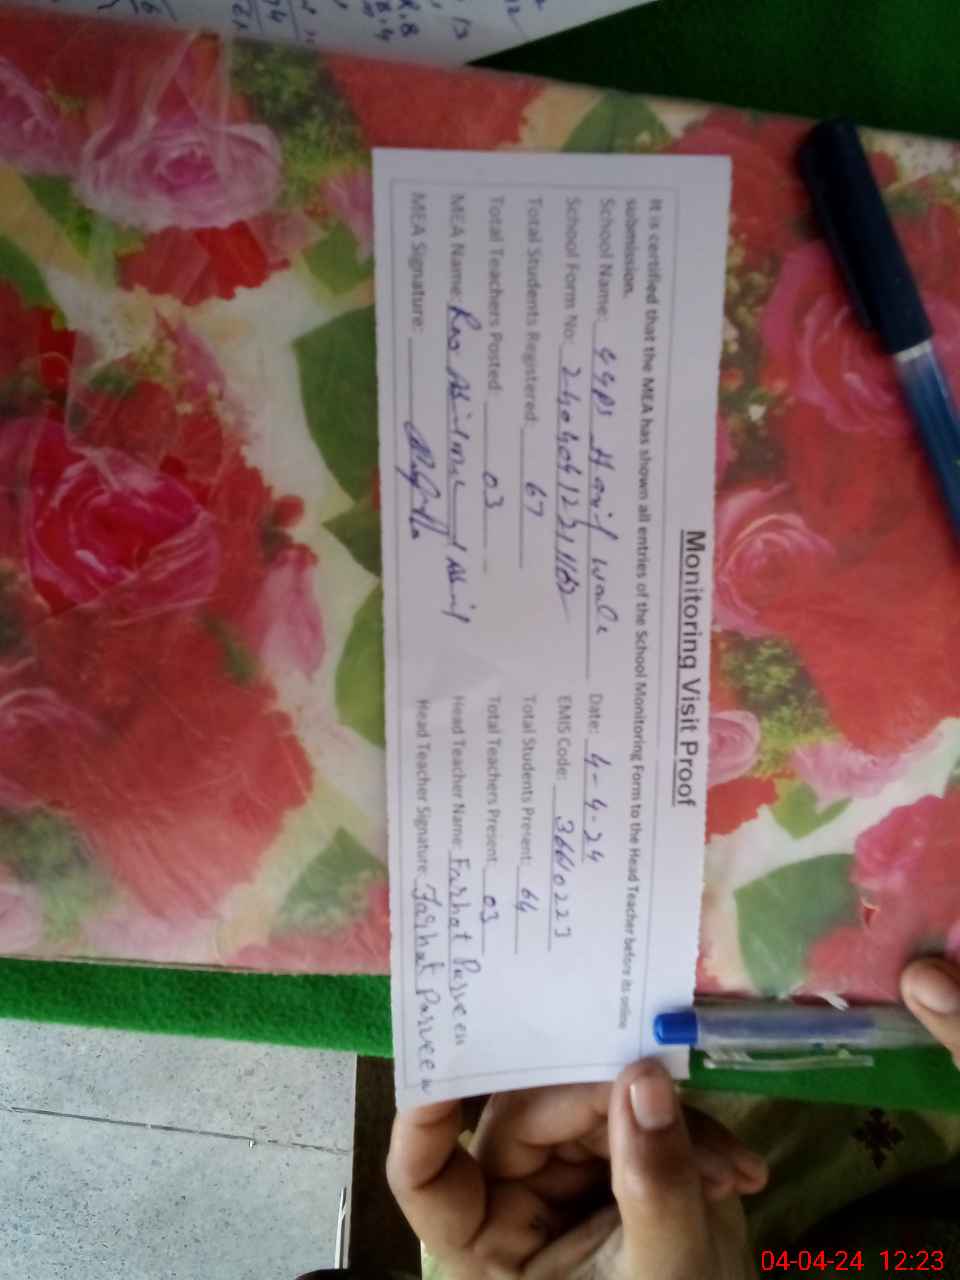 Monitoring Visit Proof
It is certified that the MEA has shown all entries of the School Monitoring Form to the Head Teacher before its online
submission.
School Name: GGPS Hanif Wala Date: 4-4-24
School Form No: EMIS Code: 36610223
Total Students Registered: 67 Total Students Present: 64
Total Teachers Posted: 03 Total Teachers Present: 03
MEA Name: Rao Head Teacher Name: Farhat Parveen
MEA Signature: Head Teacher Signature: Farhat Parveen
04-04-24 12:23